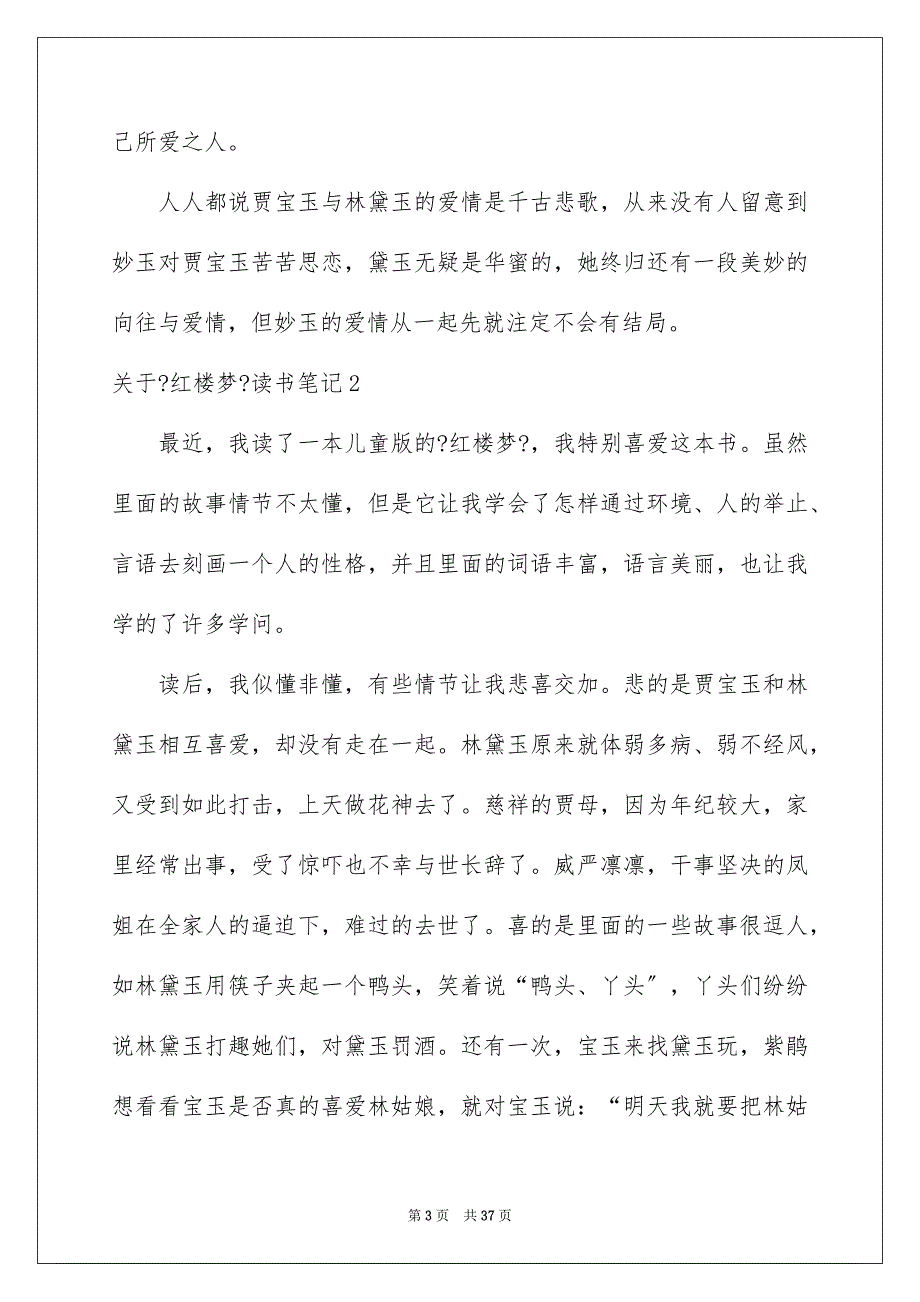 己所爱之人。
人人都说贾宝玉与林黛玉的爱情是千古悲歌，从来没有人留意到
妙玉对贾宝玉苦苦思恋，黛玉无疑是华蜜的，她终归还有一段美妙的
向往与爱情，但妙玉的爱情从一起先就注定不会有结局。
关于?红楼梦?读书笔记2
最近，我读了一本儿童版的?红楼梦?，我特别喜爱这本书。虽然
里面的故事情节不太懂，但是它让我学会了怎样通过环境、人的举止、
言语去刻画一个人的性格，并且里面的词语丰富，语言美丽，也让我
学的了许多学问。
读后，我似懂非懂，有些情节让我悲喜交加。悲的是贾宝玉和林
黛玉相互喜爱，却没有走在一起。林黛玉原来就体弱多病、弱不经风，
又受到如此打击，上天做花神去了。慈祥的贾母，因为年纪较大，家
里经常出事，受了惊吓也不幸与世长辞了。威严凛凛，干事坚决的凤
姐在全家人的逼迫下，难过的去世了。喜的是里面的一些故事很逗人，
如林黛玉用筷子夹起一个鸭头，笑着说“鸭头、丫头〞，丫头们纷纷
说林黛玉打趣她们，对黛玉罚酒。还有一次，宝玉来找黛玉玩，紫鹃
想看看宝玉是否真的喜爱林姑娘，就对宝玉说：“明天我就要把林姑
第 3 页 共 37 页